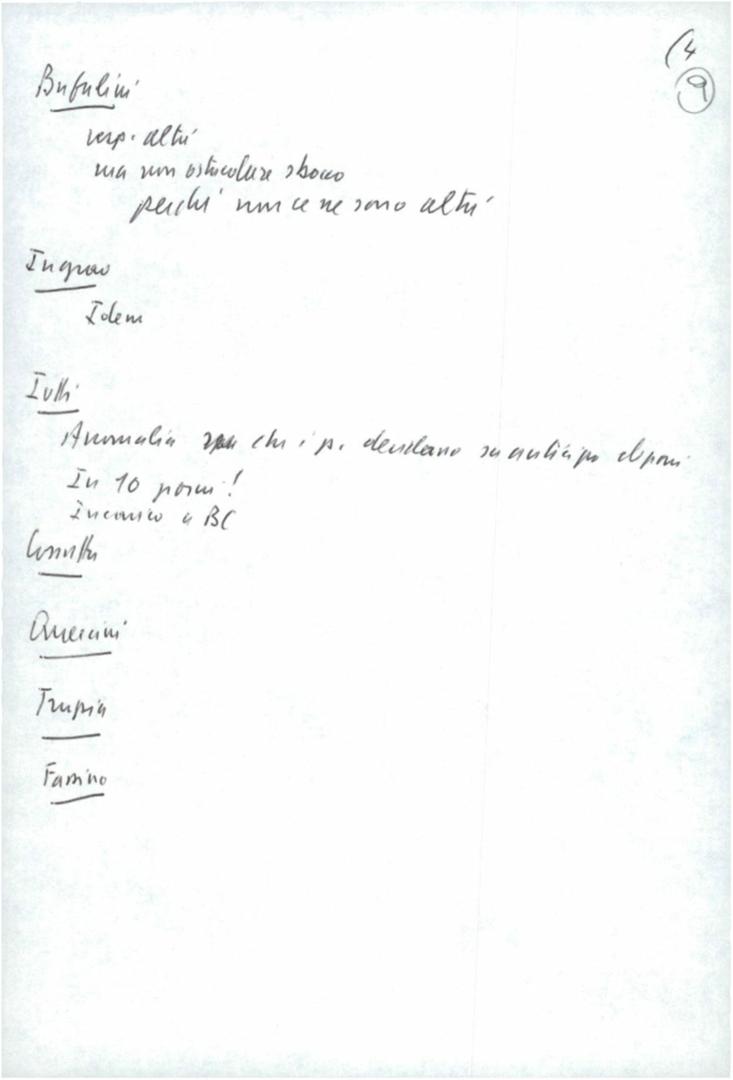 (4
9
Bufalini
resp. altri
ma non ostacolare sbocco
perché non ce ne sono altri
Ingrao
Idem
Iotti
Anomalia che i p. decidano su anticipo
In 10 giorni!
Incarico a BC
Cossutta
Quercini
Trupia
Fassino